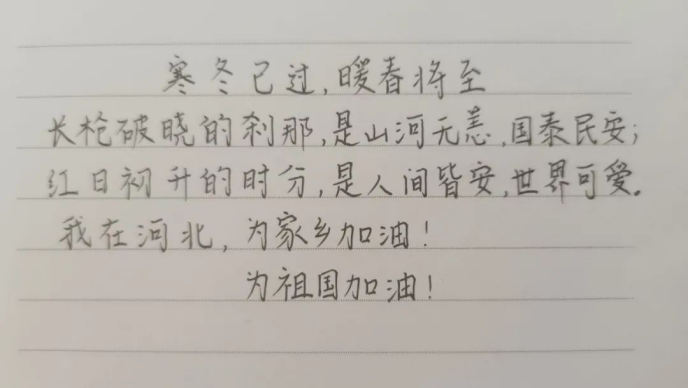 寒冬已过,暖春将至
长枪破晓的刹那,是山河无恙,国泰民安;
红日初升的时分,是人间皆安,世界可爱。
我在河北,为家乡加油!
为祖国加油!